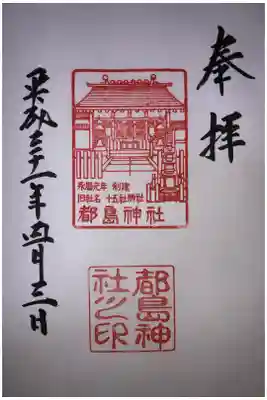 奉拝
永暦元年 創建
旧社名 十五社神社
都島神社
都島神
社之印
平成三十一年四月三日